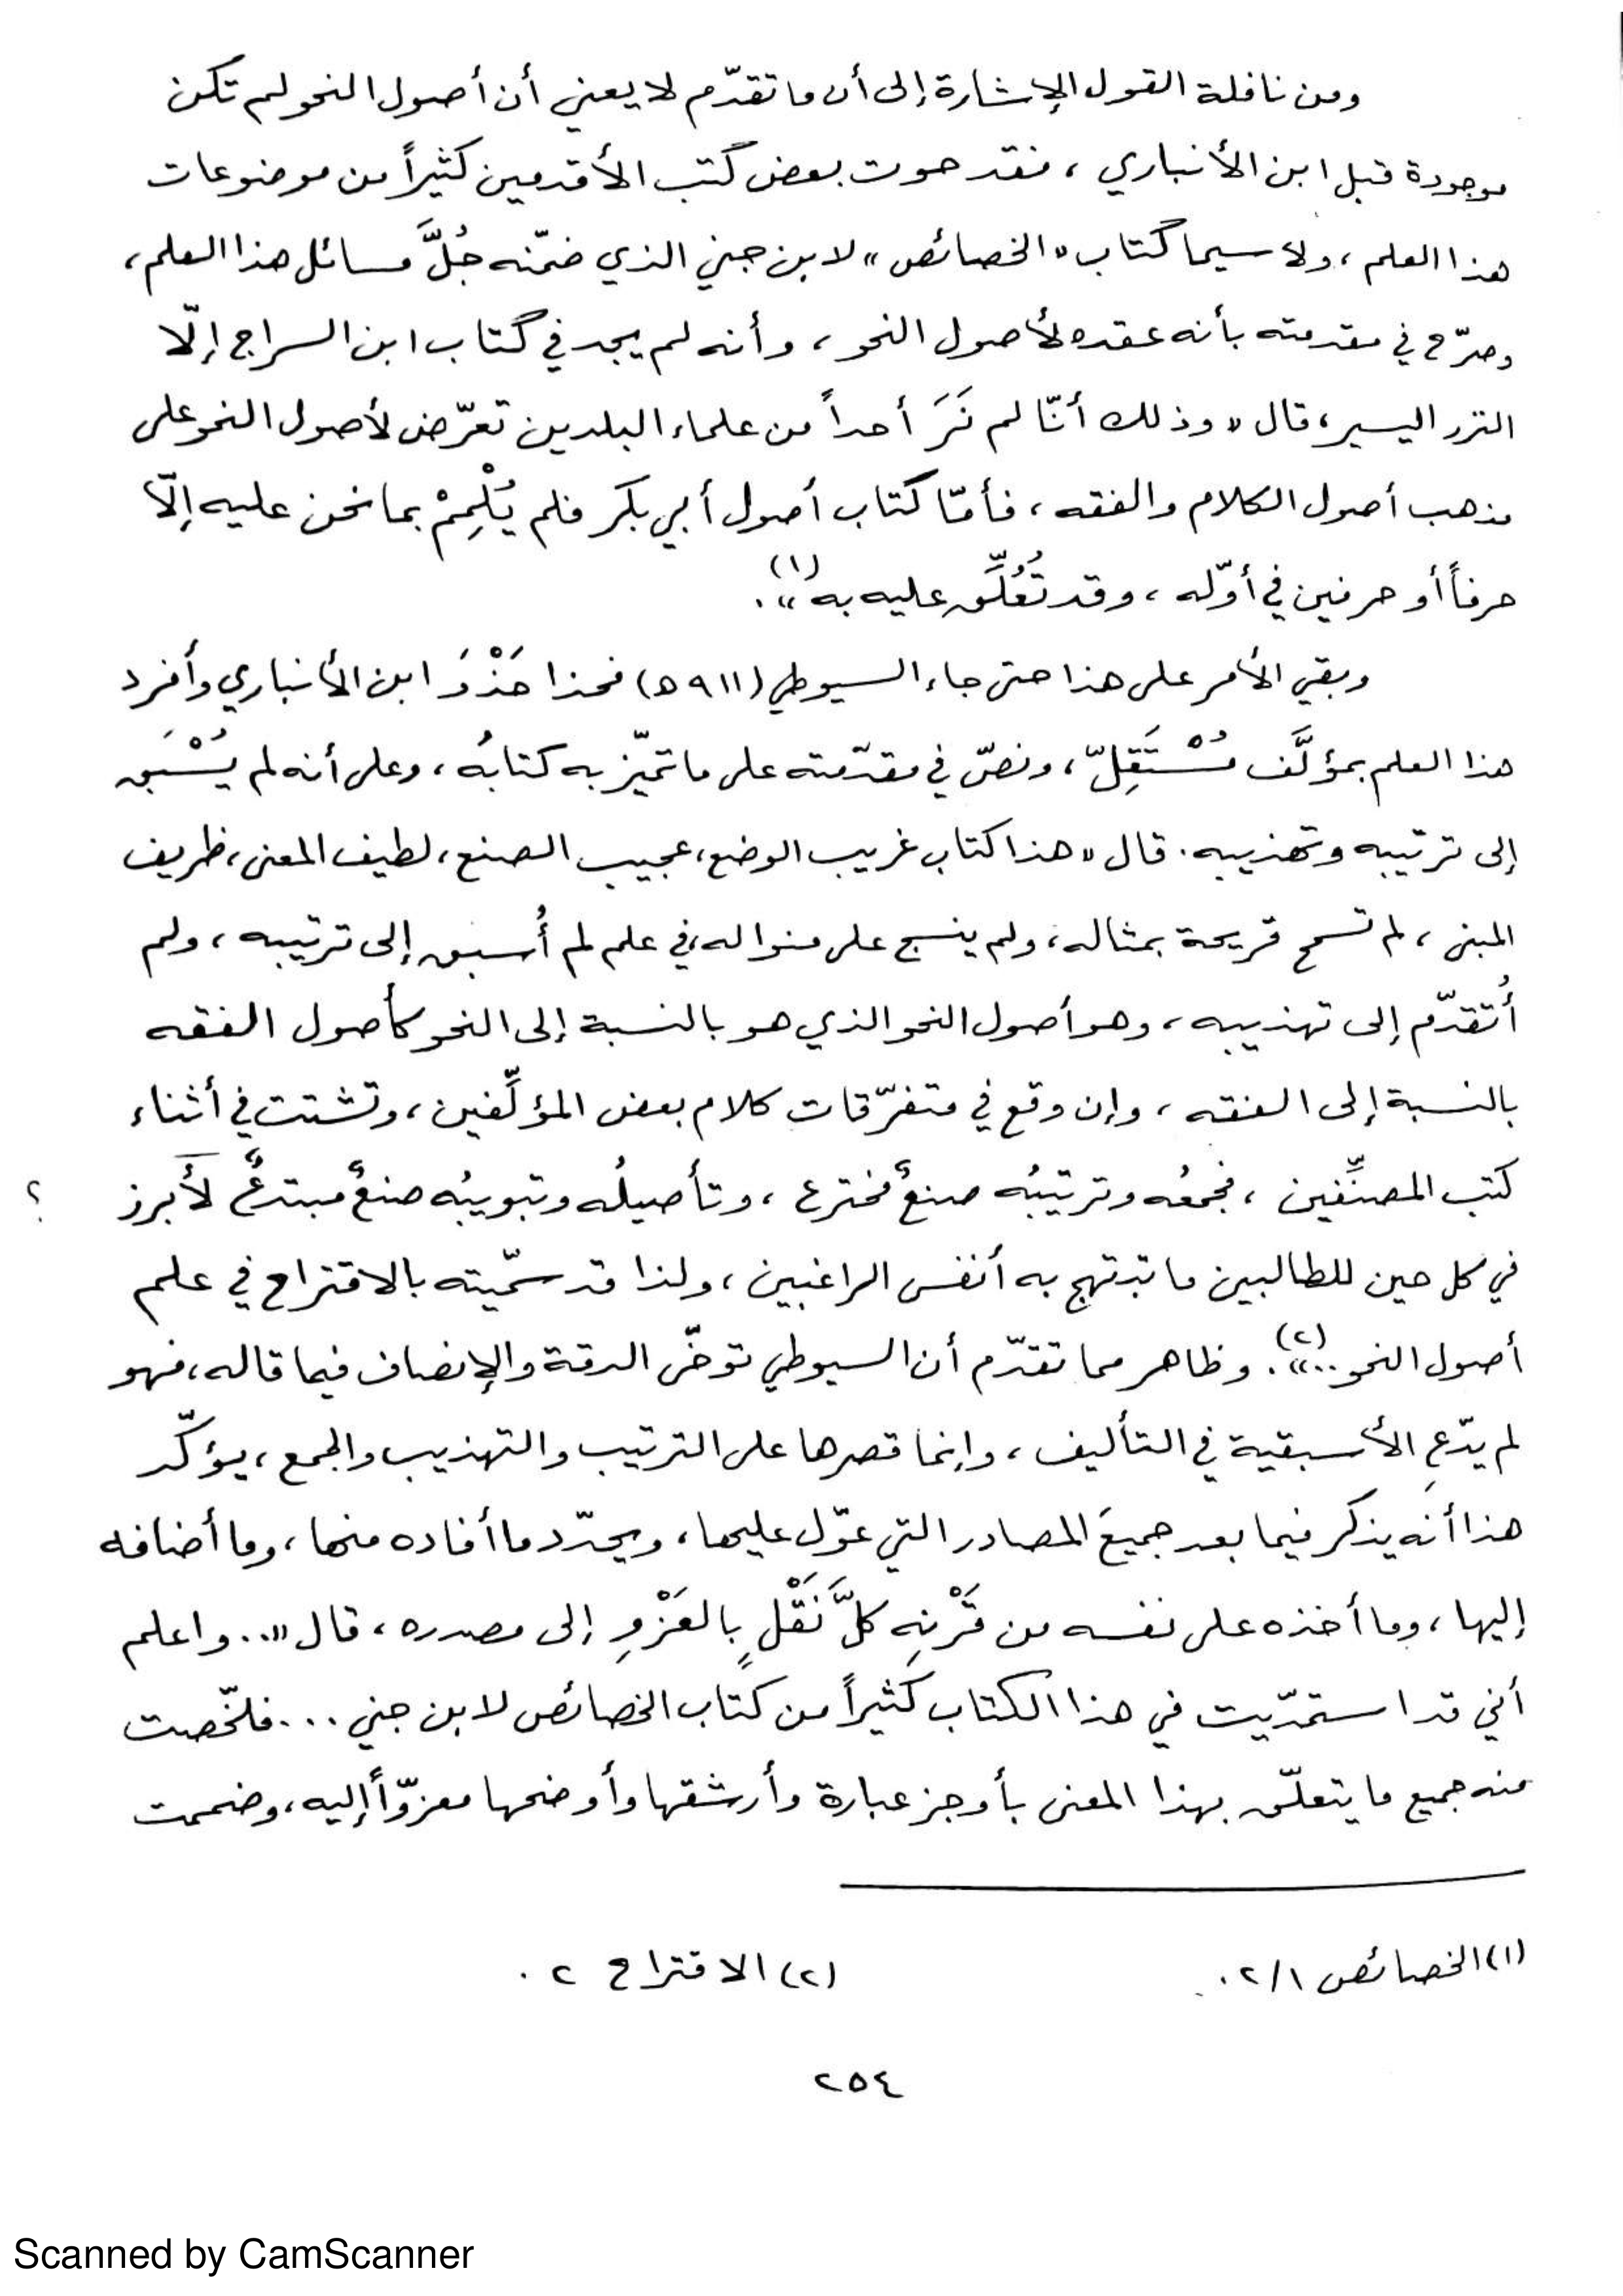 ومن نافلة القول الإشارة إلى أن ما تقدّم لا يعني أن أصول النحو لم تكن
موجودة قبل ابن الأنباري ، فقد حوت بعض كتب الأقدمين كثيراً من موضوعات
هذا العلم ، ولا سيما كتاب « الخصائص » لابن جني الذي ضمّنه جُلَّ مسائل هذا العلم ،
وصرّح في مقدمته بأنه عقده لأصول النحو ، وأنه لم يجد في كتاب ابن السراج إلّا
النزر اليسير ، قال « وذلك أنّا لم نَرَ أحداً من علماء البلدين تعرّض لأصول النحو على
مذهب أصول الكلام والفقه ، فأمّا كتاب أصول أبي بكر فلم يُلْمِمْ بما نحن عليه إلّا
حرفاً أو حرفين في أوّله ، وقد تُعُلِّق عليه به »(١) .
وبقي الأمر على هذا حتى جاء السيوطي (٩١١ ه) فحذا حَذْوَ ابن الأنباري وأفرد
هذا العلم بمؤلَّف مُسْتَقِلّ ، ونصّ في مقدّمته على ما تميّز به كتابُه ، وعلى أنه لم يُسْبَق
إلى ترتيبه وتهذيبه . قال « هذا كتاب غريب الوضع ، عجيب الصنع ، لطيف المعنى ، ظريف
المبنى ، لم تسمح قريحة بمثاله ، ولم ينسج على منواله ، في علم لم أُسبق إلى ترتيبه ، ولم
أُتقدّم إلى تهذيبه ، وهو أصول النحو الذي هو بالنسبة إلى النحو كأصول الفقه
بالنسبة إلى الفقه ، وإن وقع في متفرّقات كلام بعض المؤلِّفين ، وتشتت في أثناء
كتب المصنِّفين ، فجمعُه وترتيبُه صنعٌ مخترع ، وتأصيلُه وتبويبُه صنعٌ مبتدعٌ لأبرز ؟
في كل حين للطالبين ما تبتهج به أنفس الراغبين ، ولذا قد سمّيته بالاقتراح في علم
أصول النحو .. »(٢) . وظاهر مما تقدّم أن السيوطي توخّى الدقة والإنصاف فيما قاله ، فهو
لم يدّعِ الأسبقية في التأليف ، وإنما قصرها على الترتيب والتهذيب والجمع ، يؤكّد
هذا أنه يذكر فيما بعد جميعَ المصادر التي عوّل عليها ، ويحدّد ما أفاده منها ، وما أضافه
إليها ، وما أخذه على نفسه من قَرْنِه كلَّ نَقْلٍ بالعَزْوِ إلى مصدره ، قال « .. واعلم
أني قد استمدّيت في هذا الكتاب كثيراً من كتاب الخصائص لابن جني ... فلخّصت
منه جميع ما يتعلّق بهذا المعنى بأوجز عبارة وأرشقها وأوضحها معزوّاً إليه ، وضممت
(١) الخصائص ٢/١ . (٢) الاقتراح ٢ .
٢٥٤
Scanned by CamScanner